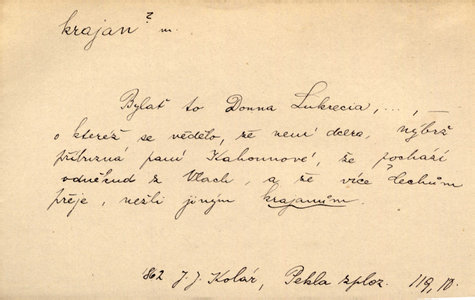 krajan ? m.
Bylať to Donna Lukrecia, ...,
o kteréž se vědělo, že není dcera, nýbrž
příbuzná paní Kahounové, že pochází
odněkud z Vlach, a že více Čechům
přeje, nežli jiným krajanům.
862 J. J. Kolár, Pekla zploz. 119, 10.